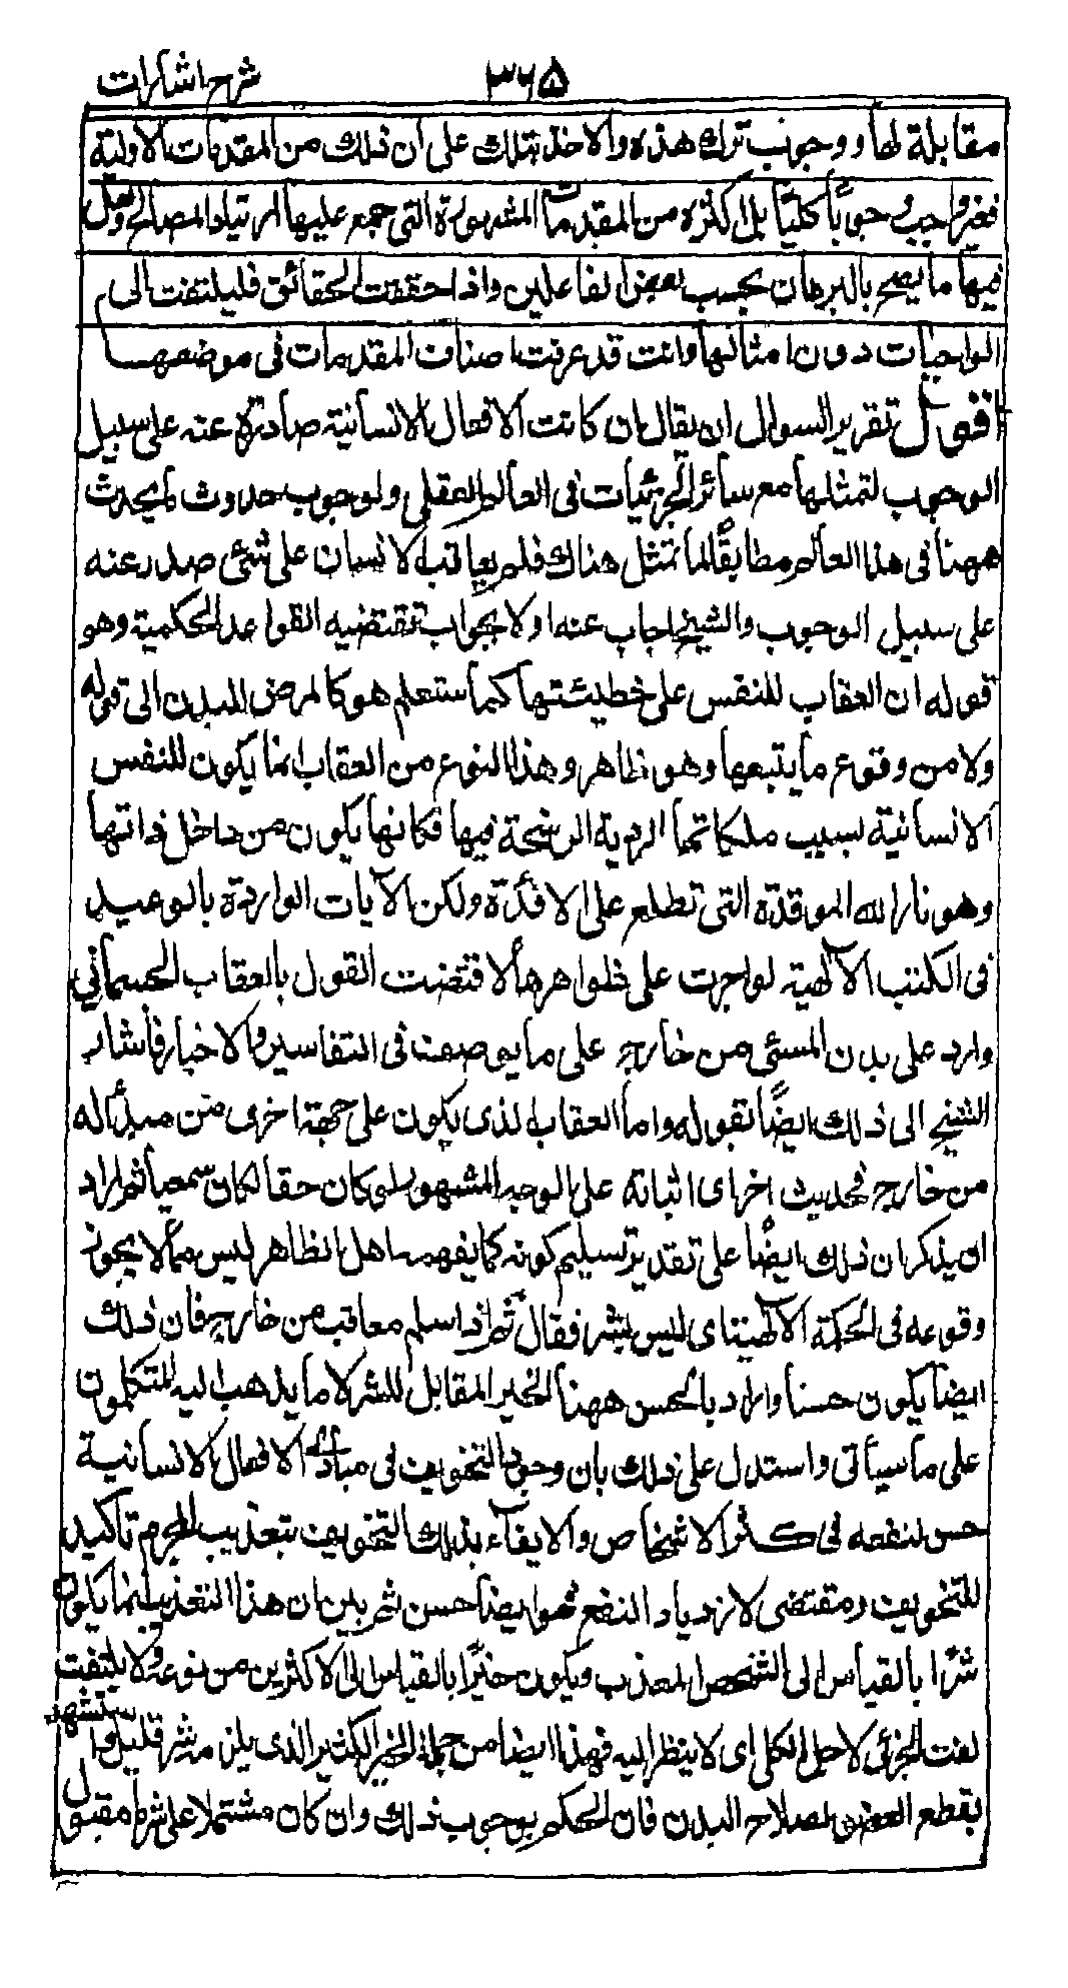 شرح اشارات ۳۶۵
مقابلة لها ووجوب ترك هذه والاخذ بتلك على ان ذلك من المقدمات الاولية
فغير واجب وجوباً كلياً بل اكثره من المقدمات المشهورة التى جمع عليها ارتياد المصالح ولعل
فيها ما يصح بالبرهان بحسب بعض الفاعلين واذا حققت الحقائق فليلتفت الى
الواجبات دون امثالها وانت قد عرفت اصناف المقدمات فى موضعها
اقول تقرير السوال ان يقال ان كانت الافعال الانسانية صادرة عنه على سبيل
الوجوب لتمثلها مع سائر الجزئيات فى العالم العقلى ولوجوب حدوث ما يحدث
ههنا فى هذا العالم مطابقاً لما تمثل هناك فلم يعاقب الانسان على شئ صدر عنه
على سبيل الوجوب والشيخ اجاب عنه اولا بجواب تقتضيه القواعد الحكمية وهو
قوله ان العقاب للنفس على خطيئتها كما ستعلم هو كالمرض للبدن الى قوله
ولا من وقوع ما يتبعها وهو ظاهر وهذا النوع من العقاب انما يكون للنفس
الانسانية بسبب ملكاتها الردية الراسخة فيها فكانها يكون من داخل ذاتها
وهو نار الله الموقدة التى تطلع على الافئدة ولكن الآيات الواردة بالوعيد
فى الكتب الآلهية لو اجرت على ظواهرها لاقتضت القول بالعقاب الجسمانى
وارد على بدن المسئ من خارج على ما يوصف فى التفاسير والاخبار فاشار
الشيخ الى ذلك ايضاً بقوله واما العقاب الذى يكون على جهة اخرى من مبدأ له
من خارج فحديث اخر اى اثباته على الوجه المشهور لو كان حقا لكان سمعياً ثم اراد
ان يذكر ان ذلك ايضاً على تقدير تسليم كونه كما يفهمه اهل الظاهر ليس مما لا يجوز
وقوعه فى الحكمة الآلهية اى ليس بشر فقال ثم اذا سلم معاقب من خارج فان ذلك
ايضا يكون حسنا واراد بالحسن ههنا الخير المقابل للشر لا ما يذهب اليه المتكلمون
على ما سيأتى واستدل على ذلك بان وجود التخويف فى مبادى الافعال الانسانية
حسن لنفعه فى اكثر الاشخاص والايفاء بذلك التخويف بتعذيب المجرم تاكيد
للتخويف ومقتضى لازدياد النفع فهو ايضا حسن ثم بين ان هذا التعذيب انما يكون
شرًا بالقياس الى الشخص المعذب ويكون خيرًا بالقياس الى الاكثرين من نوعه ولا يلتفت
لفت الجزئى لاجل الكلى اى لا ينظر اليه فهذا ايضا من جملة الخير الكثير الذى يلزمه شر قليل واستشهد
بقطع العضو لصلاح البدن فان الحكم بوجوب ذلك وان كان مشتملا على شر ما مقبول